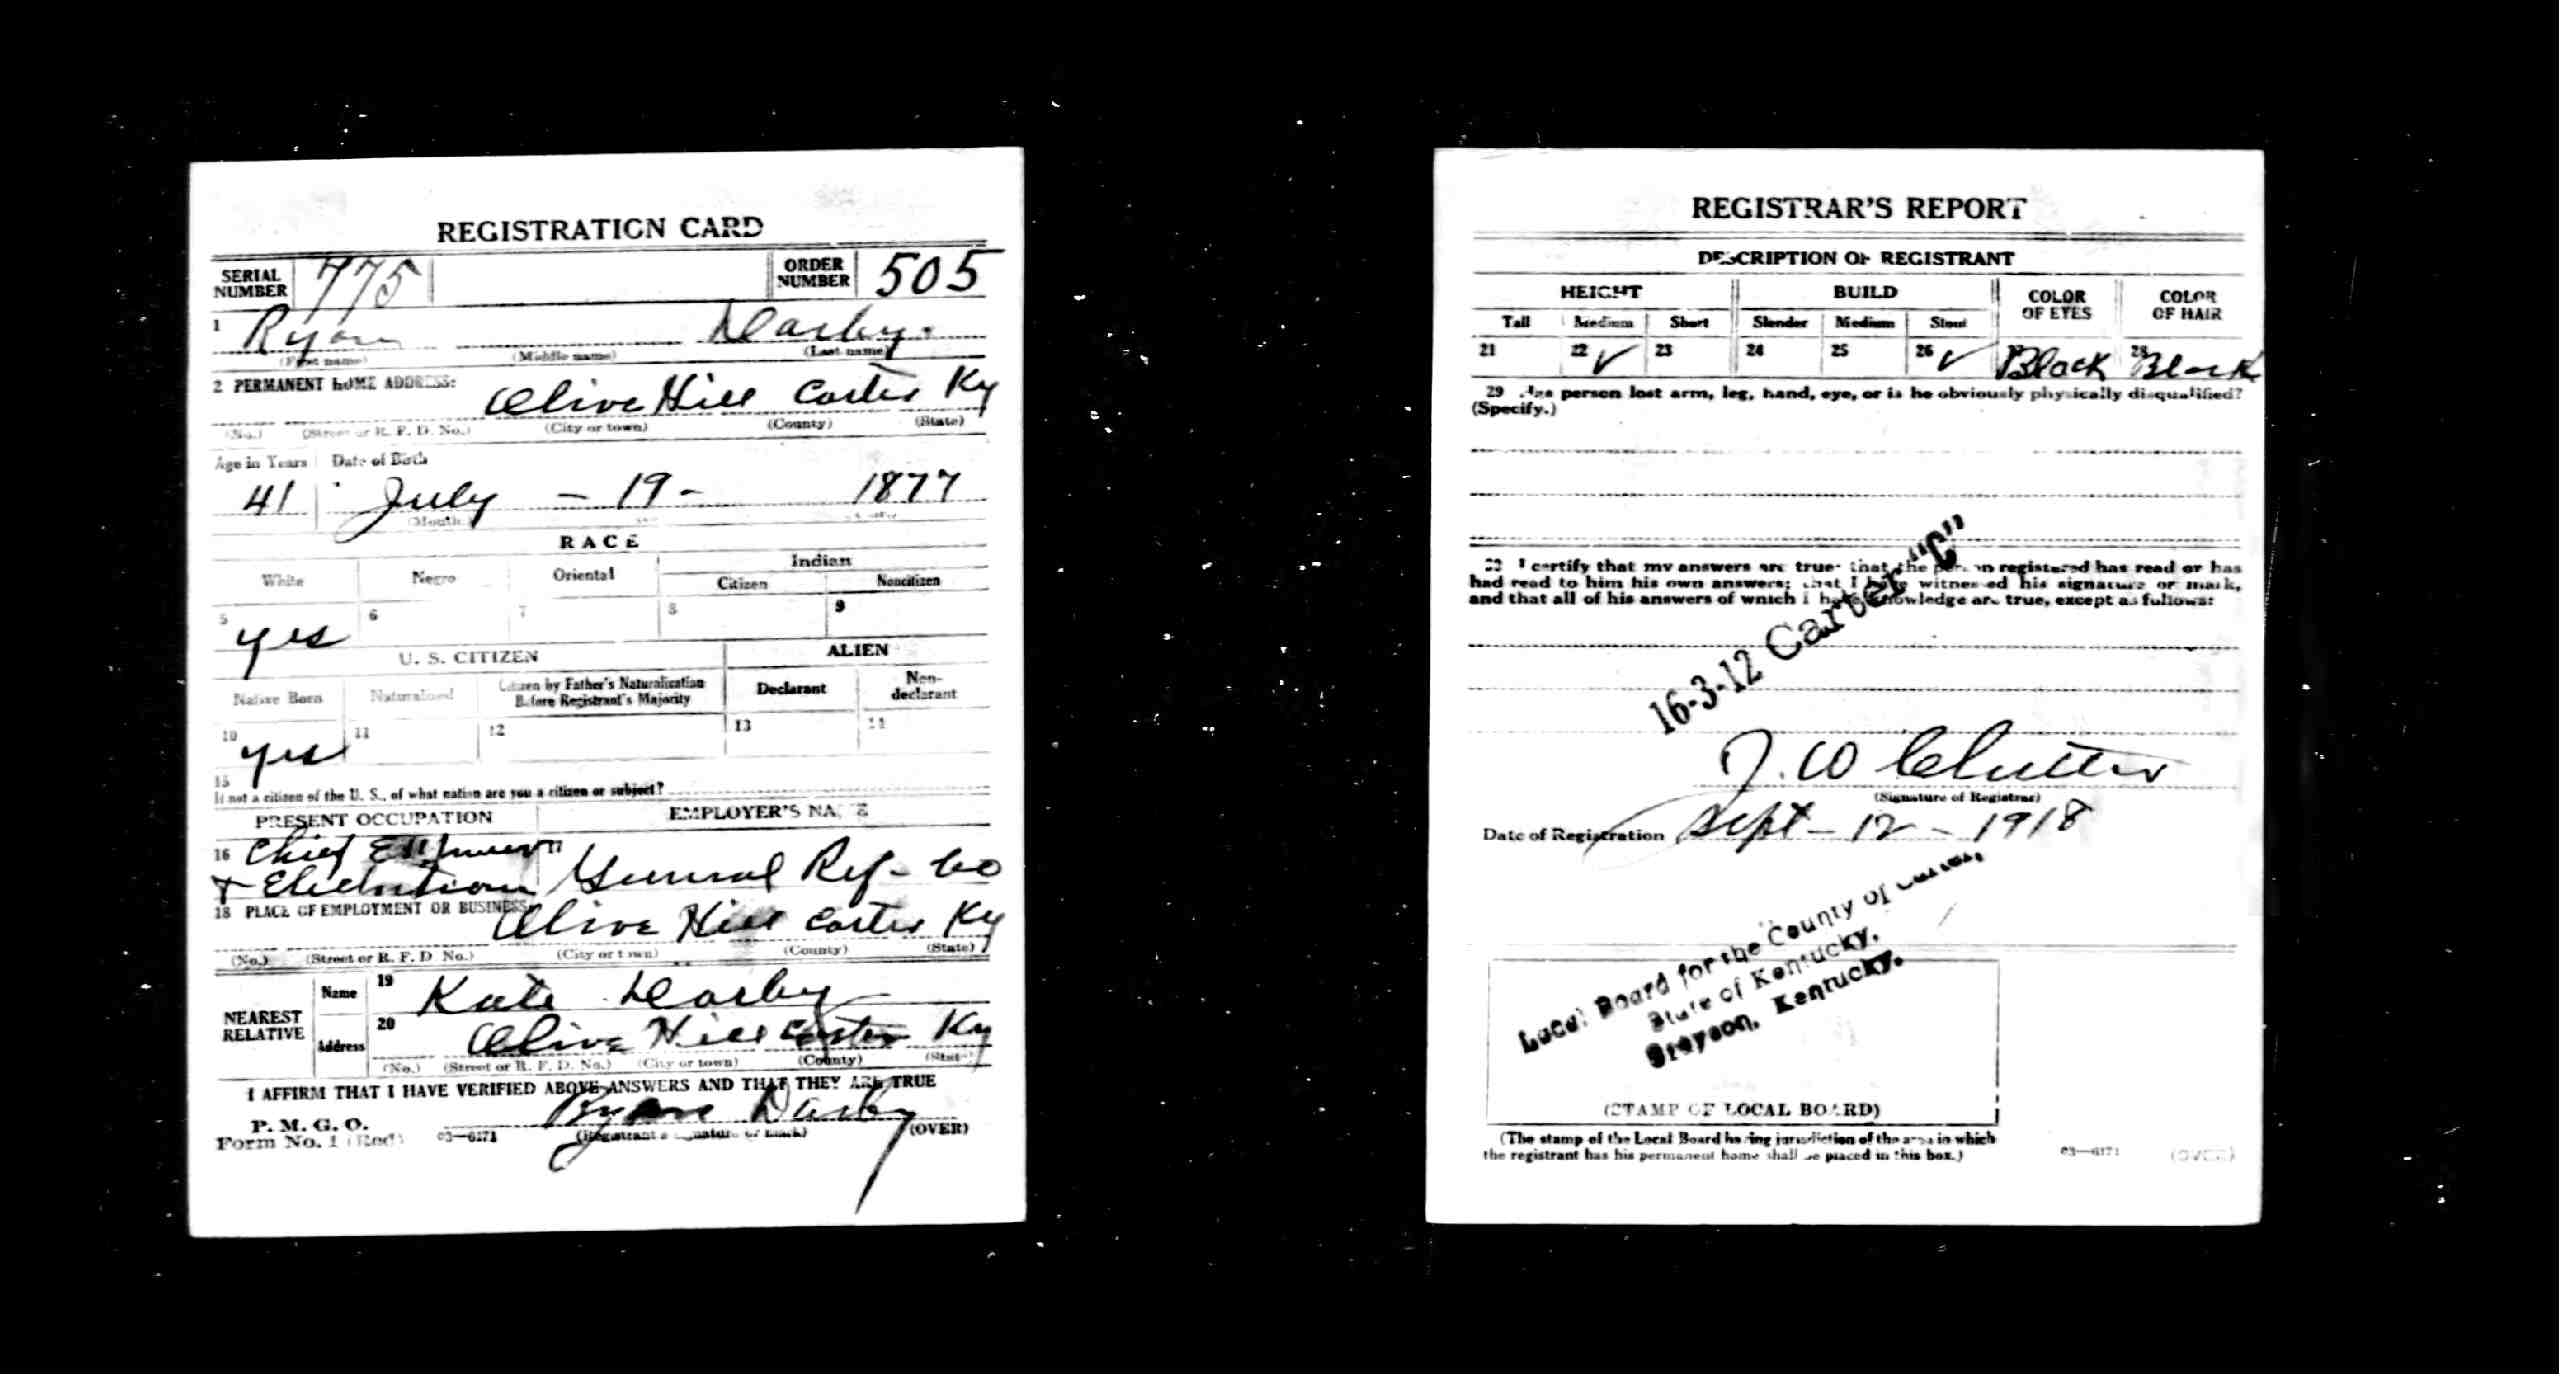 REGISTRATION CARD
SERIAL NUMBER 775 ORDER NUMBER 505
1 Ryan Darby
(First name) (Middle name) (Last name)
2 PERMANENT HOME ADDRESS:
Olive Hill Carter Ky
(No.) (Street or R. F. D. No.) (City or town) (County) (State)
Age in Years Date of Birth
41 July - 19 - 1877
(Month)
RACE
White Negro Oriental Indian
Citizen Noncitizen
5 6 7 8 9
yes
U. S. CITIZEN ALIEN
Native Born Naturalized Citizen by Father's Naturalization Before Registrant's Majority Declarant Non-declarant
10 11 12 13 14
yes
15
If not a citizen of the U. S., of what nation are you a citizen or subject?
PRESENT OCCUPATION EMPLOYER'S NAME
16 Chief
+ Electrician General Ref - Co
18 PLACE OF EMPLOYMENT OR BUSINESS
Olive Hill Carter Ky
(No.) (Street or R. F. D. No.) (City or town) (County) (State)
NEAREST RELATIVE
Name 19 Kate Darby
Address 20 Olive Hill Carter Ky
(No.) (Street or R. F. D. No.) (City or town) (County) (State)
I AFFIRM THAT I HAVE VERIFIED ABOVE ANSWERS AND THAT THEY ARE TRUE
P. M. G. O.
Form No. 1 (Red) 03—6171 Ryan Darby
(Registrant's signature or mark) (OVER)
REGISTRAR'S REPORT
DESCRIPTION OF REGISTRANT
HEIGHT BUILD COLOR OF EYES COLOR OF HAIR
Tall Medium Short Slender Medium Stout
21 22 ✓ 23 24 25 26 ✓ 27 Black 28 Black
29 Has person lost arm, leg, hand, eye, or is he obviously physically disqualified?
(Specify.)
30 I certify that my answers are true; that the person registered has read or has
had read to him his own answers; that I have witnessed his signature or mark,
and that all of his answers of which I have knowledge are true, except as follows:
16-3-12 Carter "C"
J. W. Clutter
(Signature of Registrar)
Date of Registration Sept - 12 - 1918
Local Board for the County of Carter,
State of Kentucky,
Grayson, Kentucky.
(STAMP OF LOCAL BOARD)
(The stamp of the Local Board having jurisdiction of the area in which
the registrant has his permanent home shall be placed in this box.)
03—6171 (OVER)